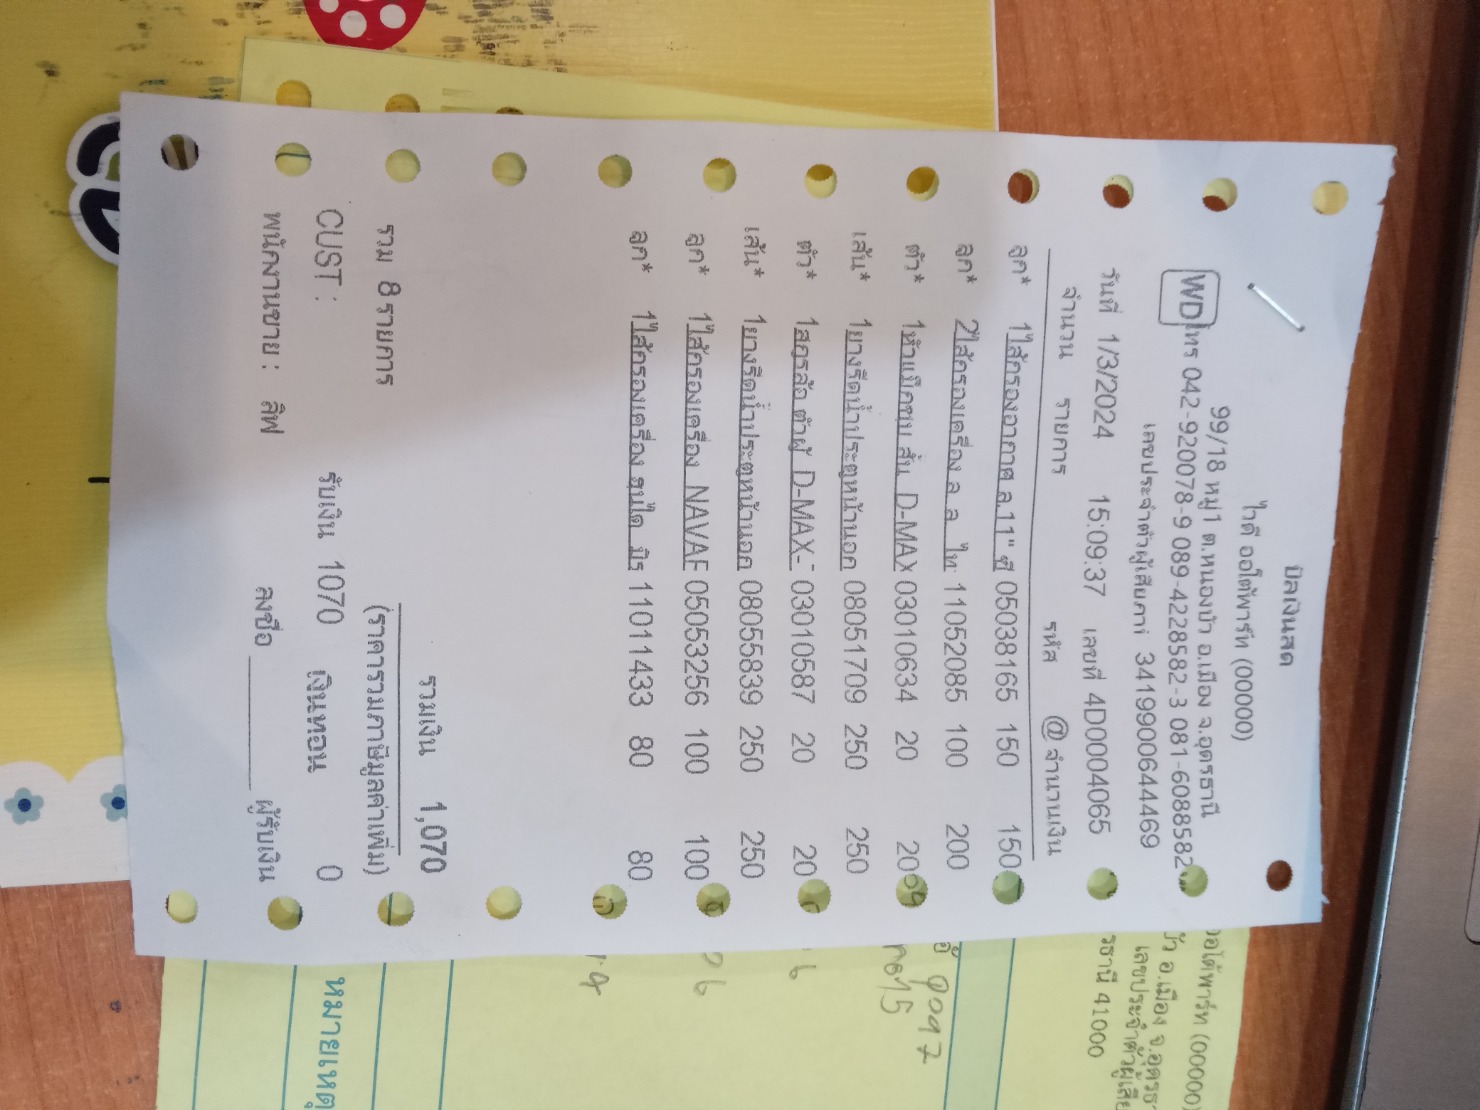 บิลเงินสด
ไวดี ออโต้พาร์ท (00000)
99/18 หมู่1 ต.หนองบัว อ.เมือง จ.อุดรธานี
WD โทร 042-920078-9 089-4228582-3 081-6088582
เลขประจำตัวผู้เสียภาษี 3419900644469
วันที่ 1/3/2024 15:09:37 เลขที่ 4D0004065
จำนวน รายการ รหัส @ จำนวนเงิน
ลูก* 1ไส้กรองอากาศ ล.11" 05038165 150 150
ลูก* 2ไส้กรองเครื่อง ล ล ไท 11052085 100 200
ตัว* 1หัวแม็กซุม สั้น D-MAX 03010634 20 20
เส้น* 1ยางรีดน้ำประตูหน้านอก 08051709 250 250
ตัว* 1สกรูล้อ ตัวผู้ D-MAX- 03010587 20 20
เส้น* 1ยางรีดน้ำประตูหน้านอก 08055839 250 250
ลูก* 1ไส้กรองเครื่อง NAVAF 05053256 100 100
ลูก* 1ไส้กรองเครื่อง ฮุนได มิร 11011433 80 80
รวมเงิน 1,070
รวม 8 รายการ (ราคารวมภาษีมูลค่าเพิ่ม)
CUST : รับเงิน 1070 เงินทอน 0
พนักงานขาย : ลิฟ ลงชื่อ ผู้รับเงิน
ออโต้พาร์ท (00000)
บัว อ.เมือง จ.อุดรธา
เลขประจำตัวผู้เสีย
รธานี 41000
หมายเหตุ